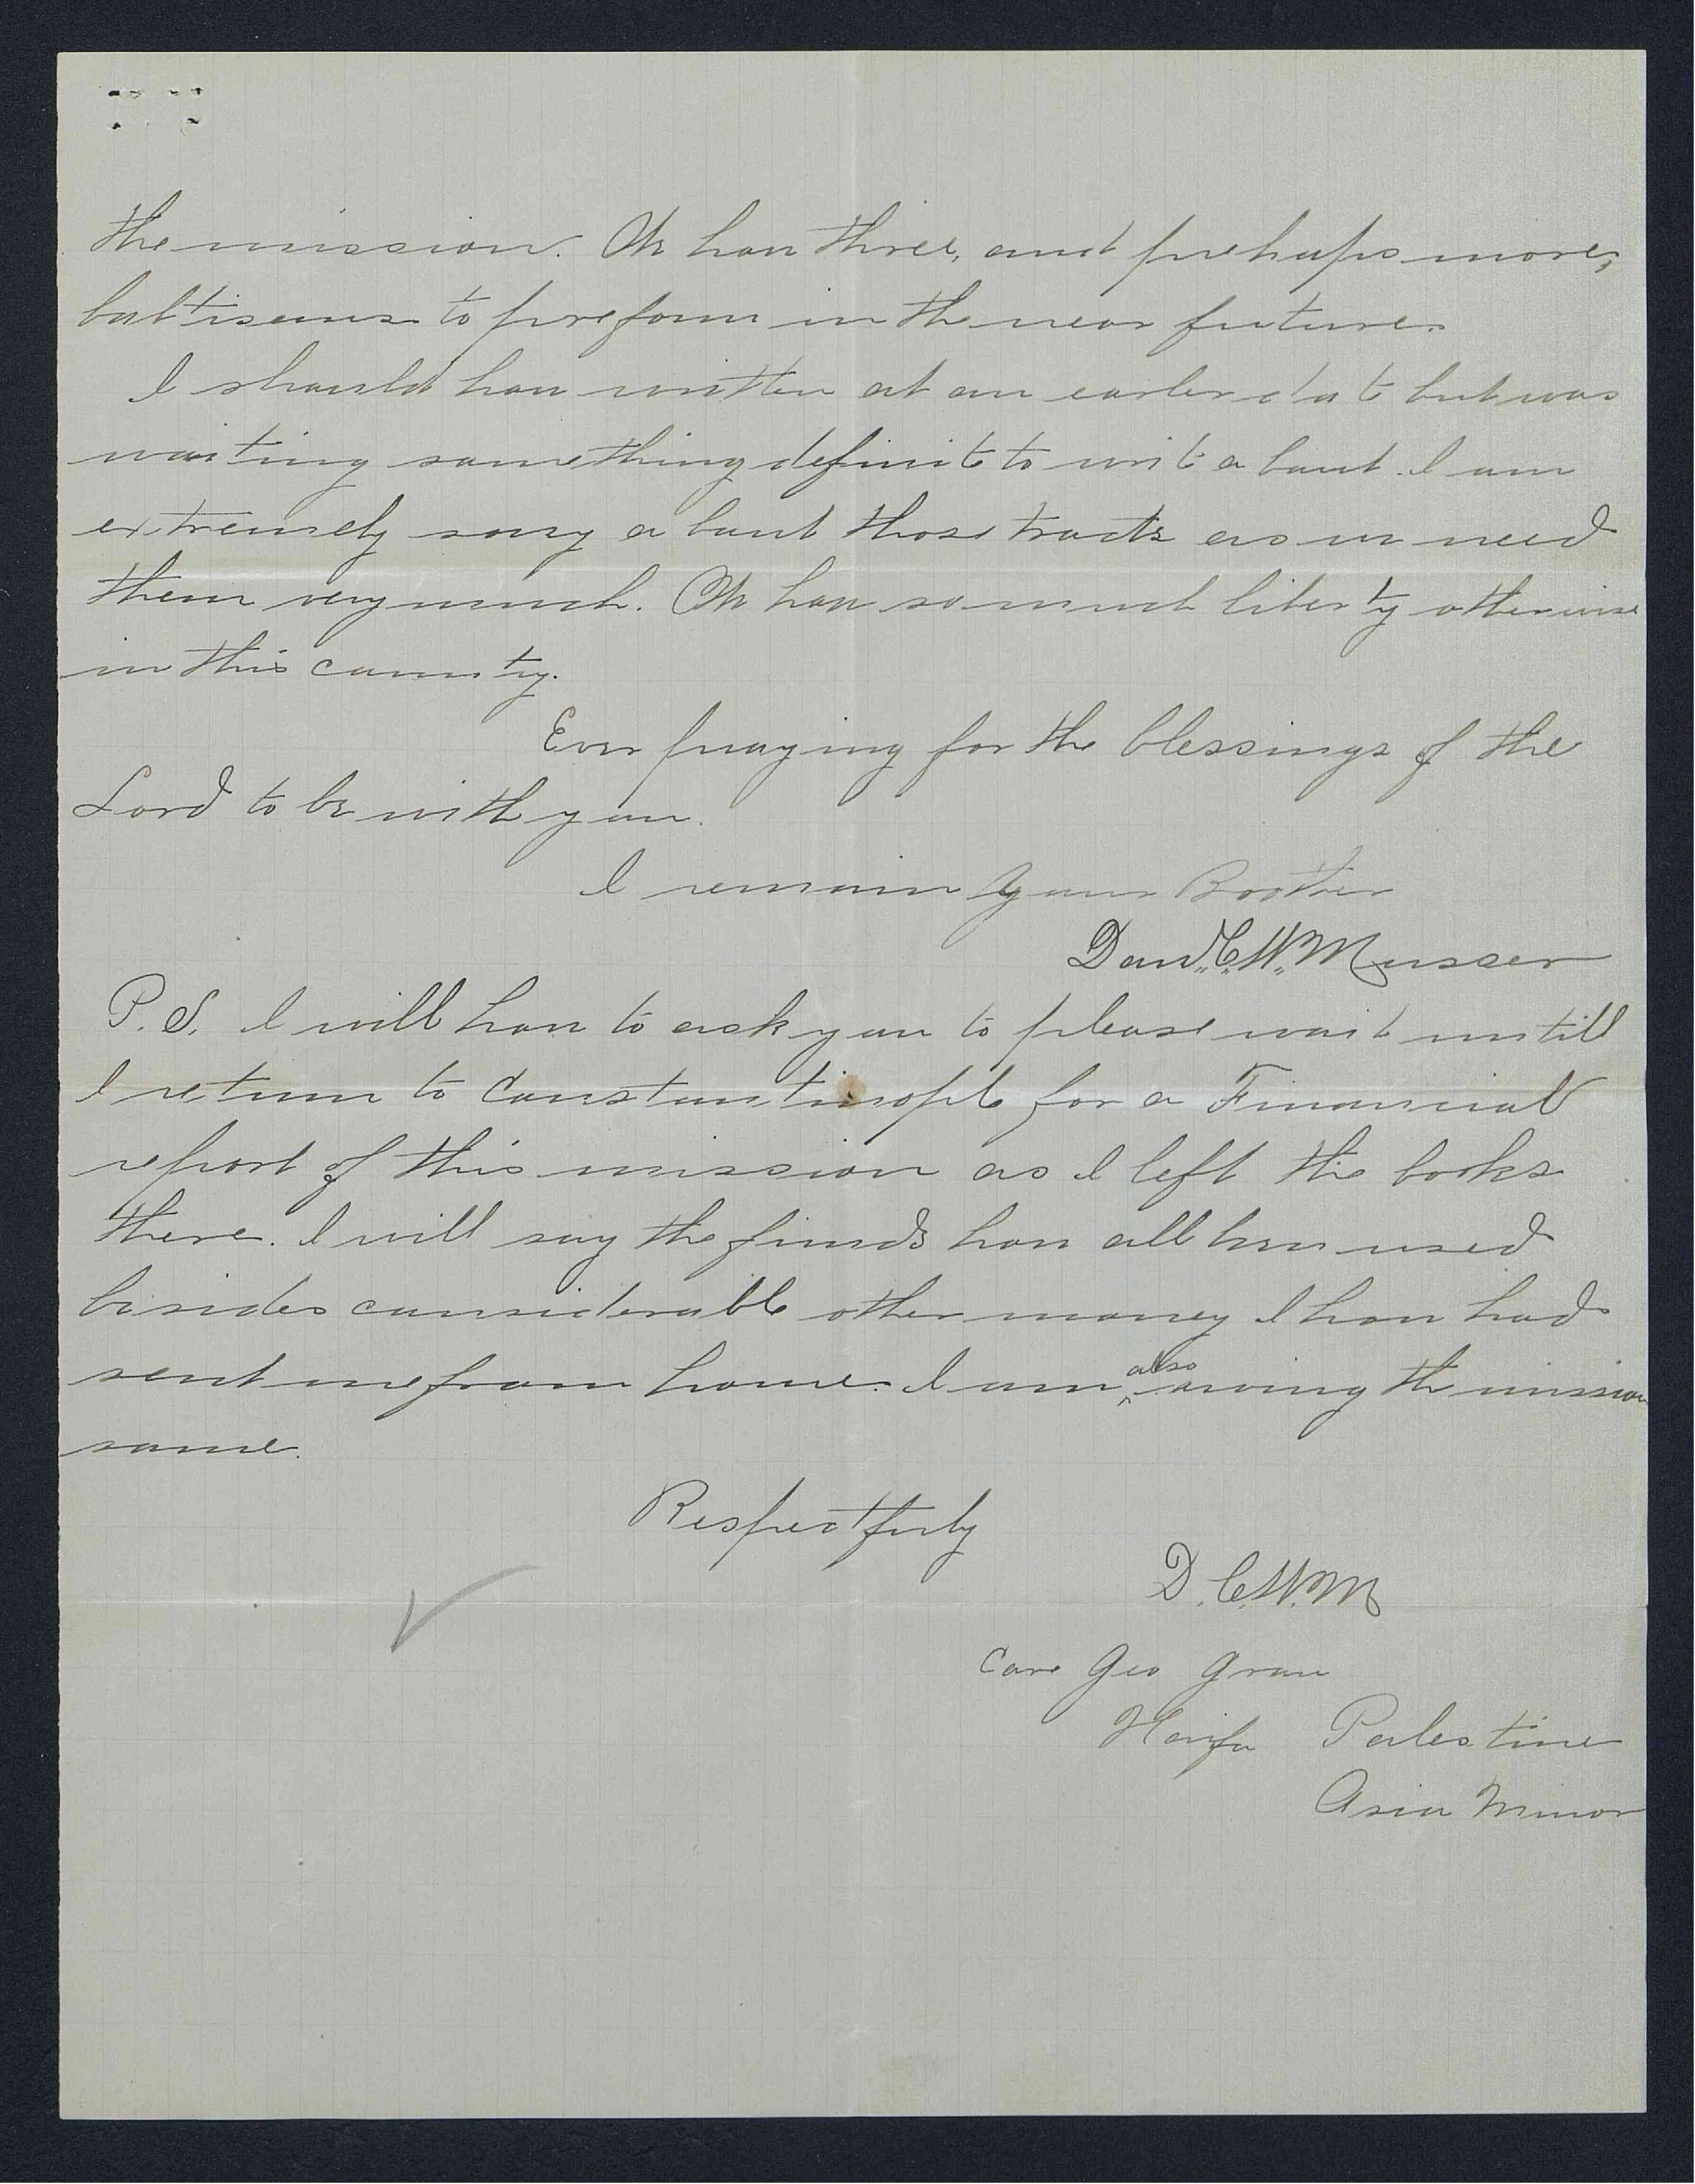 the mission. We have three, and prehaps more,
babtisems to preform in the near future.
I should have written at an earler date but was
waiting something definite to write about. I am
extremely sorry about those tracts as we need
them very much. We have so much liberty otherwise
in this country.
Ever praying for the blessings of the
Lord to be with you.
I remain Your Brother
Don. C. W. Musser
P. S. I will have to ask you to please wait untill
I return to Constantinople for a Financial
report of this mission as I left the books
there. I will say the funds have all been used
besides considerable other money I have had
sent me from home. I am also owing the mission
some.
Respectfuly
D. C. W. M
Care Geo Grau
Haifa Palestine
Asia Minor